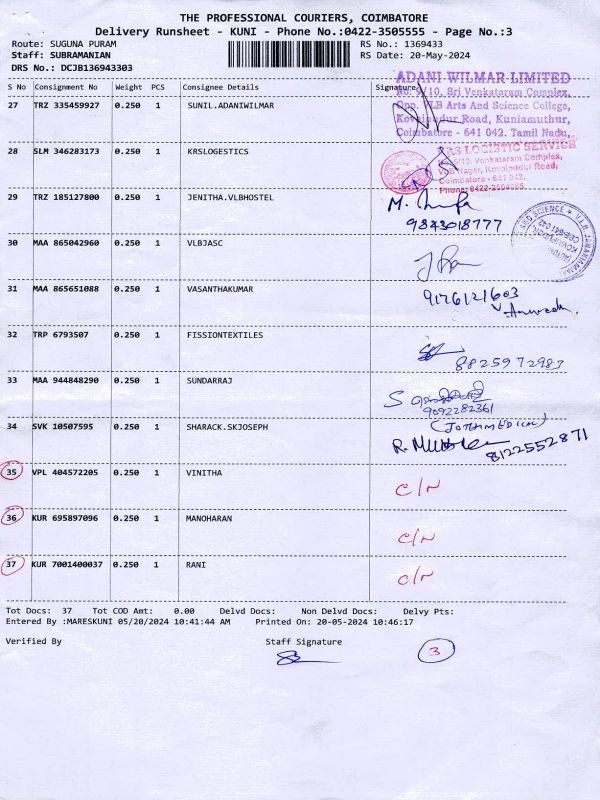 THE PROFESSIONAL COURIERS, COIMBATORE
Delivery Runsheet - KUNI - Phone No.:0422-3505555 - Page No.:3
Route: SUGUNA PURAM RS No.: 1369433
Staff: SUBRAMANIAN RS Date: 20-May-2024
DRS No.: DCJB136943303
S No Consignment No Weight PCS Consignee Details Signature
ADANI WILMAR LIMITED
No. 9/10, Sri Venkataram Complex,
Opp. VLB Arts And Science College,
Kovaipudur Road, Kuniamuthur,
Coimbatore - 641 042. Tamil Nadu,
27 TRZ 335459927 0.250 1 SUNIL.ADANIWILMAR
28 SLM 346283173 0.250 1 KRSLOGESTICS
KRS LOGISTIC SERVICE
9/10, Venkataram Complex,
VLB Nagar, Kovaipudur Road,
Coimbatore - 641 042.
29 TRZ 185127800 0.250 1 JENITHA.VLBHOSTEL
9843018777
30 MAA 865042960 0.250 1 VLBJASC
31 MAA 865651088 0.250 1 VASANTHAKUMAR
9176121603
32 TRP 6793507 0.250 1 FISSIONTEXTILES
8825972983
33 MAA 944848290 0.250 1 SUNDARRAJ
9092282361
34 SVK 10507595 0.250 1 SHARACK.SKJOSEPH
8122552871
35 VPL 404572205 0.250 1 VINITHA C/N
36 KUR 695897096 0.250 1 MANOHARAN C/N
37 KUR 7001400037 0.250 1 RANI C/N
Tot Docs: 37 Tot COD Amt: 0.00 Delvd Docs: Non Delvd Docs: Delvy Pts:
Entered By :MARESKUNI 05/20/2024 10:41:44 AM Printed On: 20-05-2024 10:46:17
Verified By Staff Signature
3